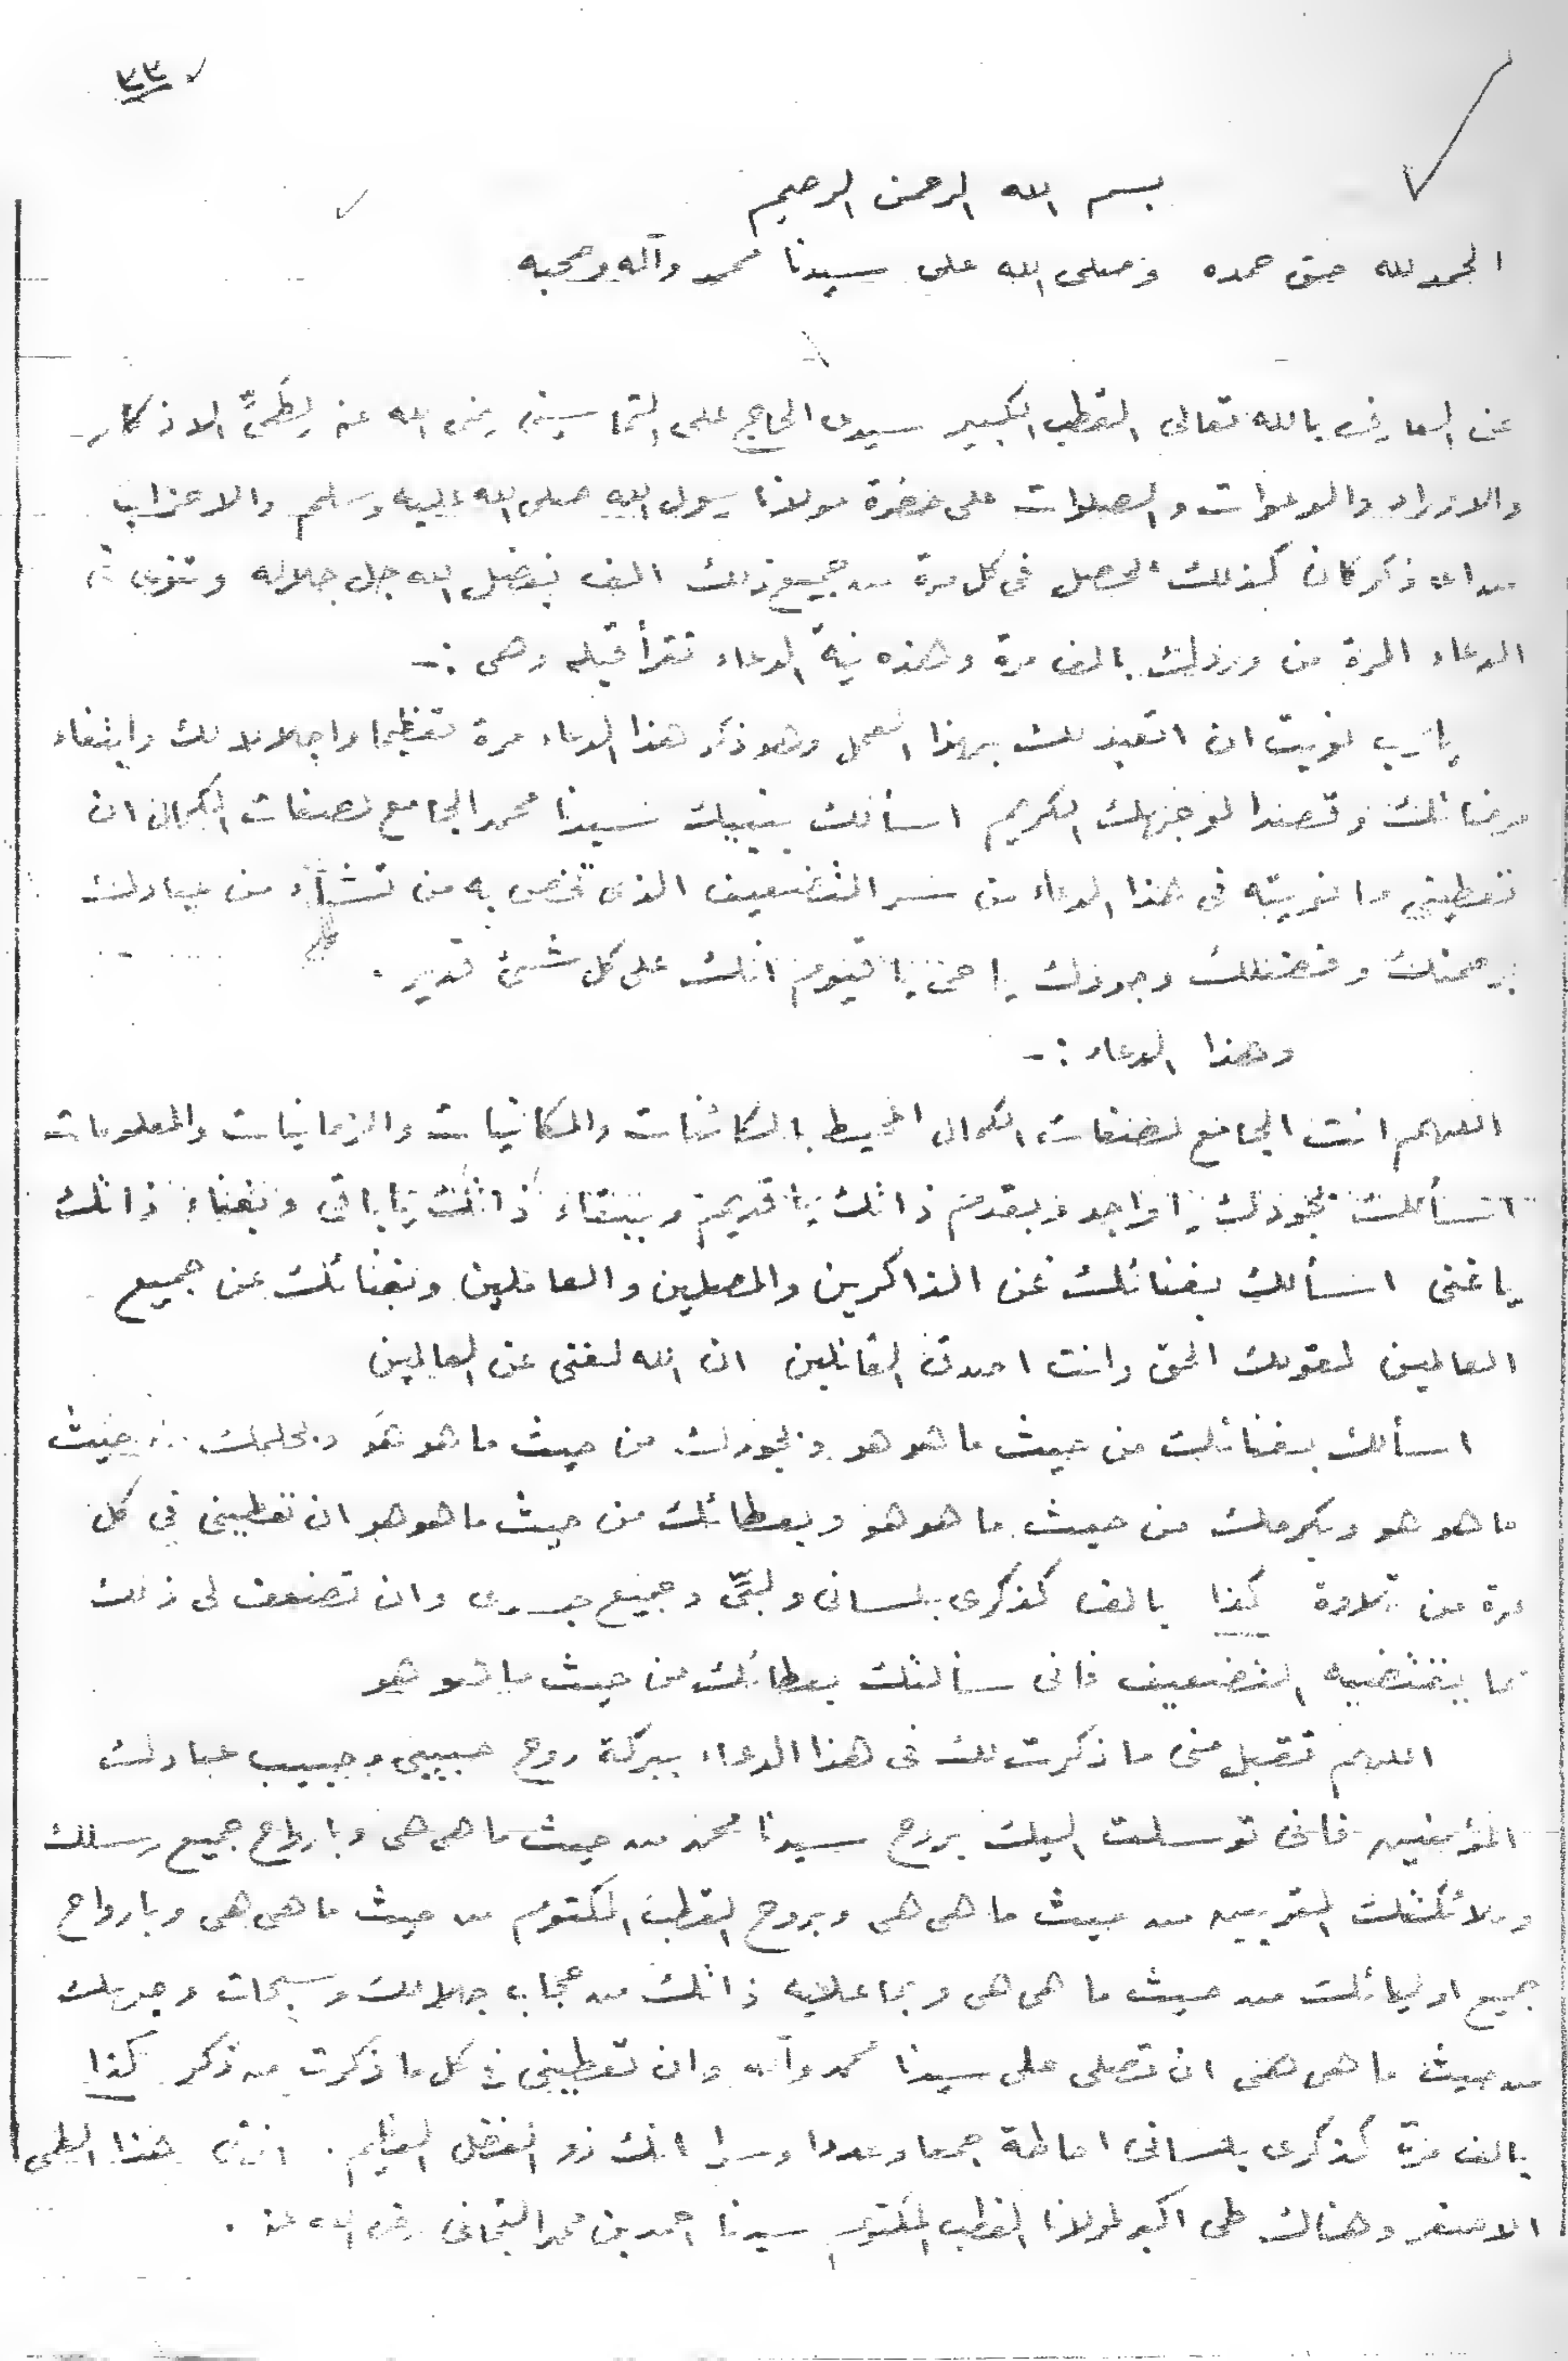 ٣٣
بسم الله الرحمن الرحيم
الحمد لله حق حمده وصلى الله على سيدنا محمد وآله وصحبه
عن العارف بالله تعالى القطب الكبير سيدى الحاج على التماسينى رضى الله عنه لطىّ الاذكار
والاوراد والدعوات والصلوات على حضرة مولانا رسول الله صلى الله عليه وسلم والاحزاب
من اى ذكر كان كذلك يحصل فى كل مرة من جميع ذلك الف بفضل الله جل جلاله وتنوى فى
الدعاء المرة من وردك بالف مرة وهذه نية الدعاء تقرأ قبله وهى :-
يارب نويت ان اتعبد لك بهذا العمل وهو ذكر هذا الدعاء مرة تعظيما واجلالا لك وابتغاء
مرضاتك وقصدا لوجهك الكريم اسألك بنبيك سيدنا محمد الجامع لصفات الكمال ان
تعطينى ما نويته فى هذا الدعاء من سر التضعيف الذى تخص به من تشاء من عبادك
برحمتك وفضلك وجودك يا حى يا قيوم انك على كل شىء قدير .
وهذا الدعاء :-
اللهم انت الجامع لصفات الكمال المحيط بالكائنات والمكانيات والزمانيات والمعلومات
اسألك بجودك يا واجد وبقدم ذاتك يا قديم وببقاء ذاتك يا باقى وبغناء ذاتك
يا غنى اسألك بغنائك عن الذاكرين والمصلين والعاملين وبغنائك عن جميع
العالمين لقولك الحق وانت اصدق القائلين ان الله لغنى عن العالمين
اسألك بغنائك من حيث ما هو هو وبجودك من حيث ما هو هو وبحلمك من حيث
ما هو هو وبكرمك من حيث ما هو هو وبعطائك من حيث ما هو هو ان تعطينى فى كل
مرة من تلاوة كذا بالف كذكرى بلسانى ولبىّ وجميع جسدى وان تضعف لى ذلك
بما يقتضيه التضعيف فانى سألتك بعطائك من حيث ما هو هو
اللهم تقبل منى ما ذكرت لك فى هذا الدعاء ببركة روح حبيبى وحبيب عبادك
المؤمنين فانى توسلت اليك بروح سيدنا محمد من حيث ما هى هى وبارواح جميع رسلك
وملائكتك المقربين من حيث ما هى هى وبروح القطب المكتوم من حيث ما هى هى وبارواح
جميع اوليائك من حيث ما هى هى وبما علاية ذاتك من حجاب جلالك وسبحات وجهك
من حيث ما هى هى ان تصلى على سيدنا محمد وآله وان تعطينى فى كل ما ذكرت من ذكر كذا
بالف مرة كذكرى بلسانى احاطة جمعا وعددا وسرا انك ذو الفضل العظيم . انتهى هذا الطى
الاصغر وهناك طى اكبر لمولانا القطب المكتوم سيدنا احمد بن محمد التجانى رضى الله عنه .